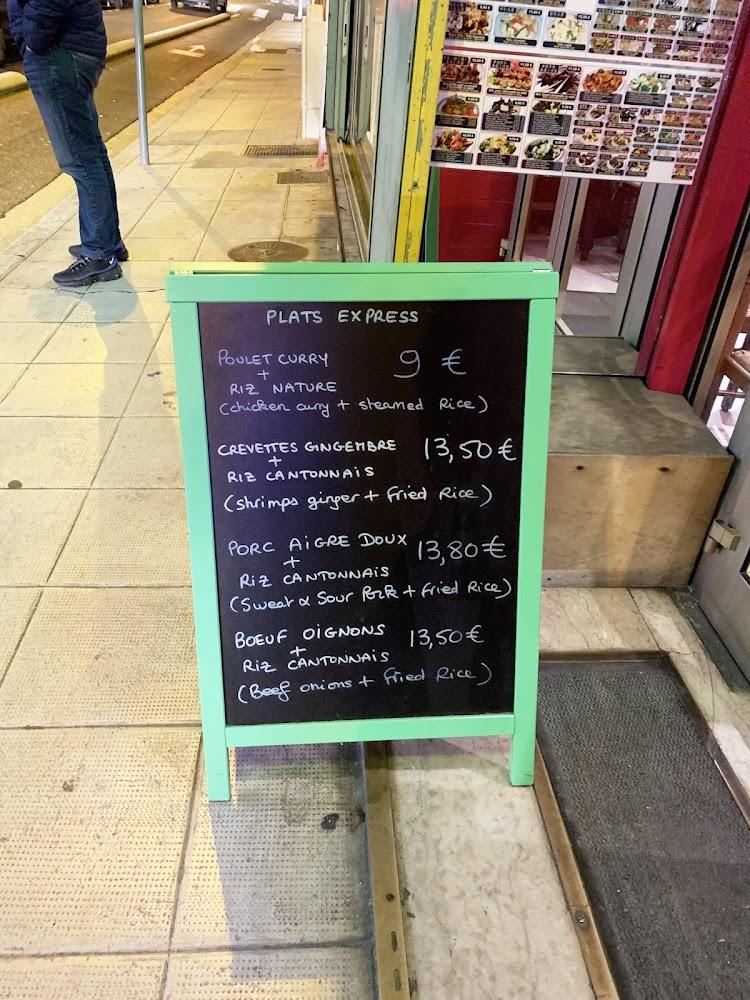 PLATS EXPRESS
POULET CURRY 9 €
+
RIZ NATURE
(chicken curry + steamed Rice)
CREVETTES GINGEMBRE 13,50€
+
RIZ CANTONNAIS
(Shrimps ginger + Fried Rice)
PORC AIGRE DOUX 13,80€
+
RIZ CANTONNAIS
(Sweat & Sour Pork + Fried Rice)
BOEUF OIGNONS 13,50€
+
RIZ CANTONNAIS
(Beef onions + Fried Rice)